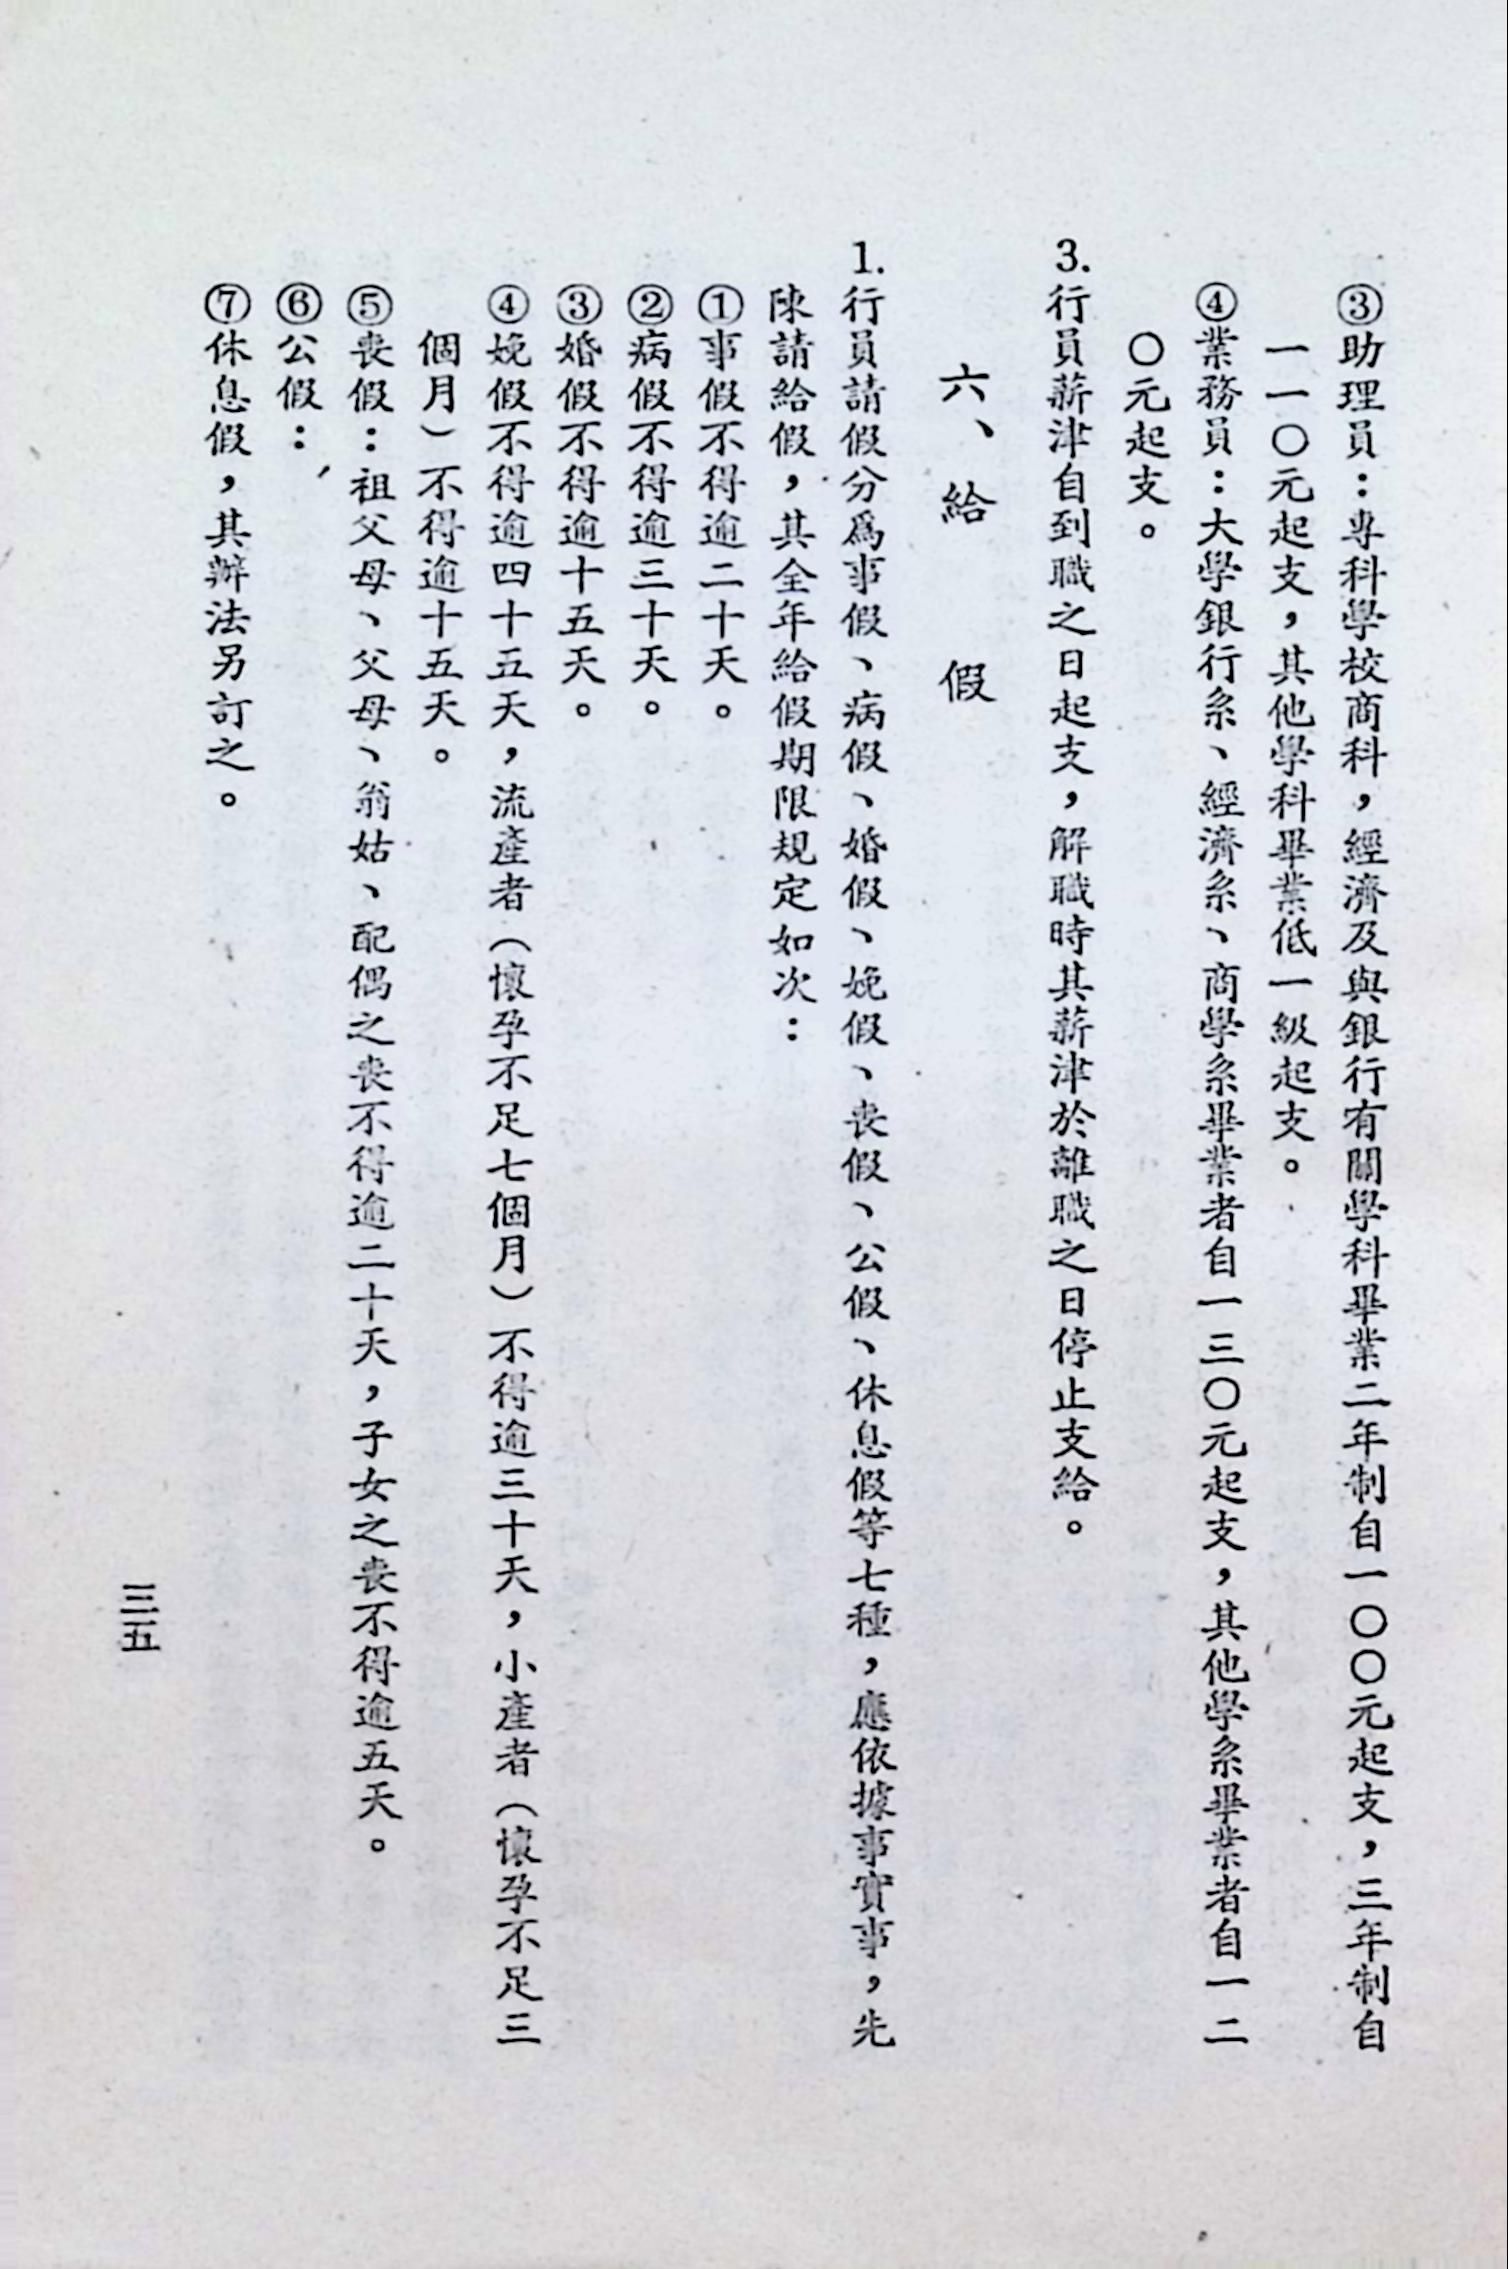 ③助理員：專科學校商科，經濟及與銀行有關學科畢業二年制自一〇〇元起支，三年制自
一一〇元起支，其他學科畢業低一級起支。
④業務員：大學銀行系、經濟系、商學系畢業者自一三〇元起支，其他學系畢業者自一二
〇元起支。
3.行員薪津自到職之日起支，解職時其薪津於離職之日停止支給。
六、給假
1.行員請假分爲事假、病假、婚假、娩假、喪假、公假、休息假等七種，應依據事實事，先
陳請給假，其全年給假期限規定如次：
①事假不得逾二十天。
②病假不得逾三十天。
③婚假不得逾十五天。
④娩假不得逾四十五天，流產者（懷孕不足七個月）不得逾三十天，小產者（懷孕不足三
個月）不得逾十五天。
⑤喪假：祖父母、父母、翁姑、配偶之喪不得逾二十天，子女之喪不得逾五天。
⑥公假：
⑦休息假，其辦法另訂之。
三五